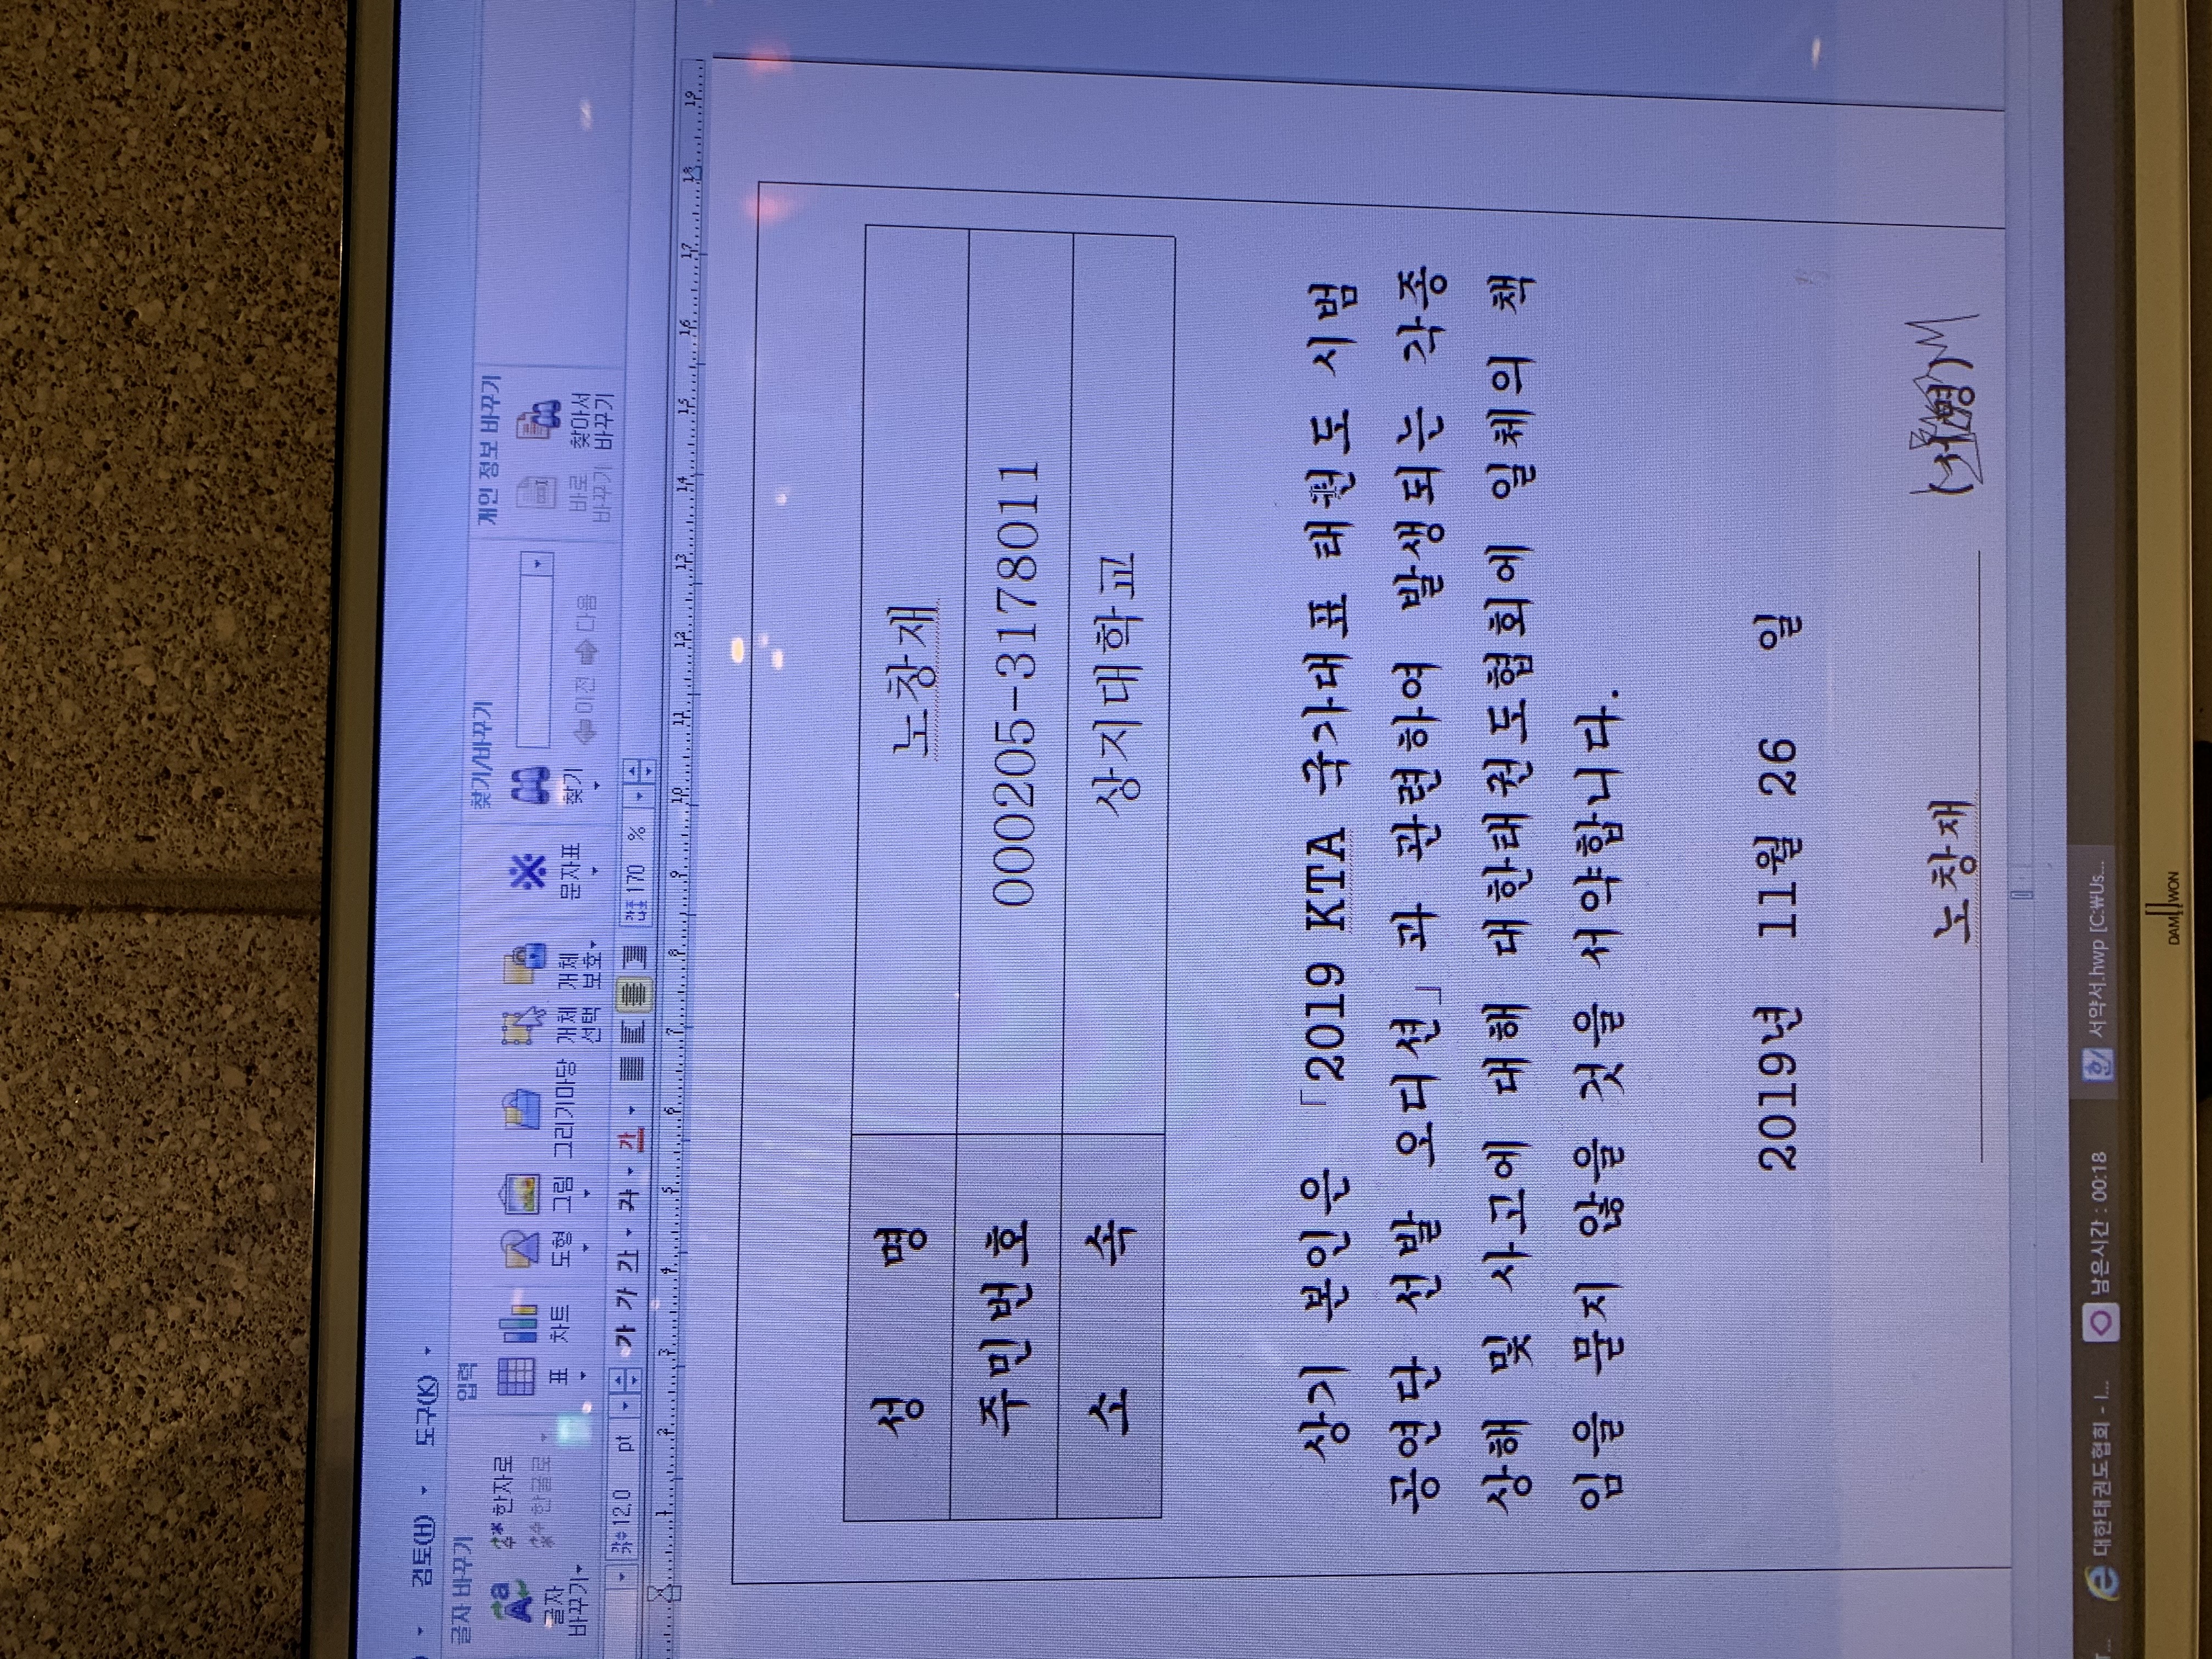 검토(H) 도구(K)
글자 바꾸기 입력 찾기/바꾸기 개인 정보 바꾸기
글자 바꾸기 한자로 한글로 표 차트 도형 그림 그리기마당 개체 선택 개체 보호 문자표 찾기 이전 다음 바로 바꾸기 찾아서 바꾸기
12.0 pt 가 가 가 가 가 170 %
1 2 3 4 5 6 7 8 9 10 11 12 13 14 15 16 17 18 19
성 명 노창재
주민번호 000205-3178011
소 속 상지대학교
상기 본인은 「2019 KTA 국가대표 태권도 시범
공연단 선발 오디션」과 관련하여 발생되는 각종
상해 및 사고에 대해 대한태권도협회에 일체의 책
임을 묻지 않을 것을 서약합니다.
2019년 11월 26 일
노창재 (서명)
대한태권도협회 - I... 남은시간 : 00:18 서약서.hwp [C:₩Us...
DAMOWON